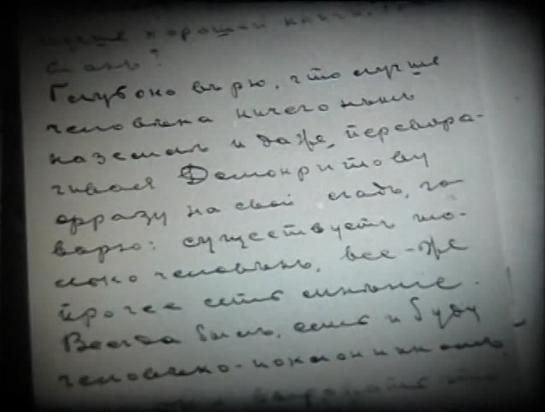 лучше хорошей книги
Глубоко вѣрю, что лучше
человѣка ничего нѣтъ
на землѣ и даже, перевора-
чивая Демокритову
фразу на свой ладъ, го-
ворю: существуетъ то-
лько человѣкъ, все-же
прочее есть мнѣние.
Всегда былъ, есмь и буду
человѣко-поклонникомъ,